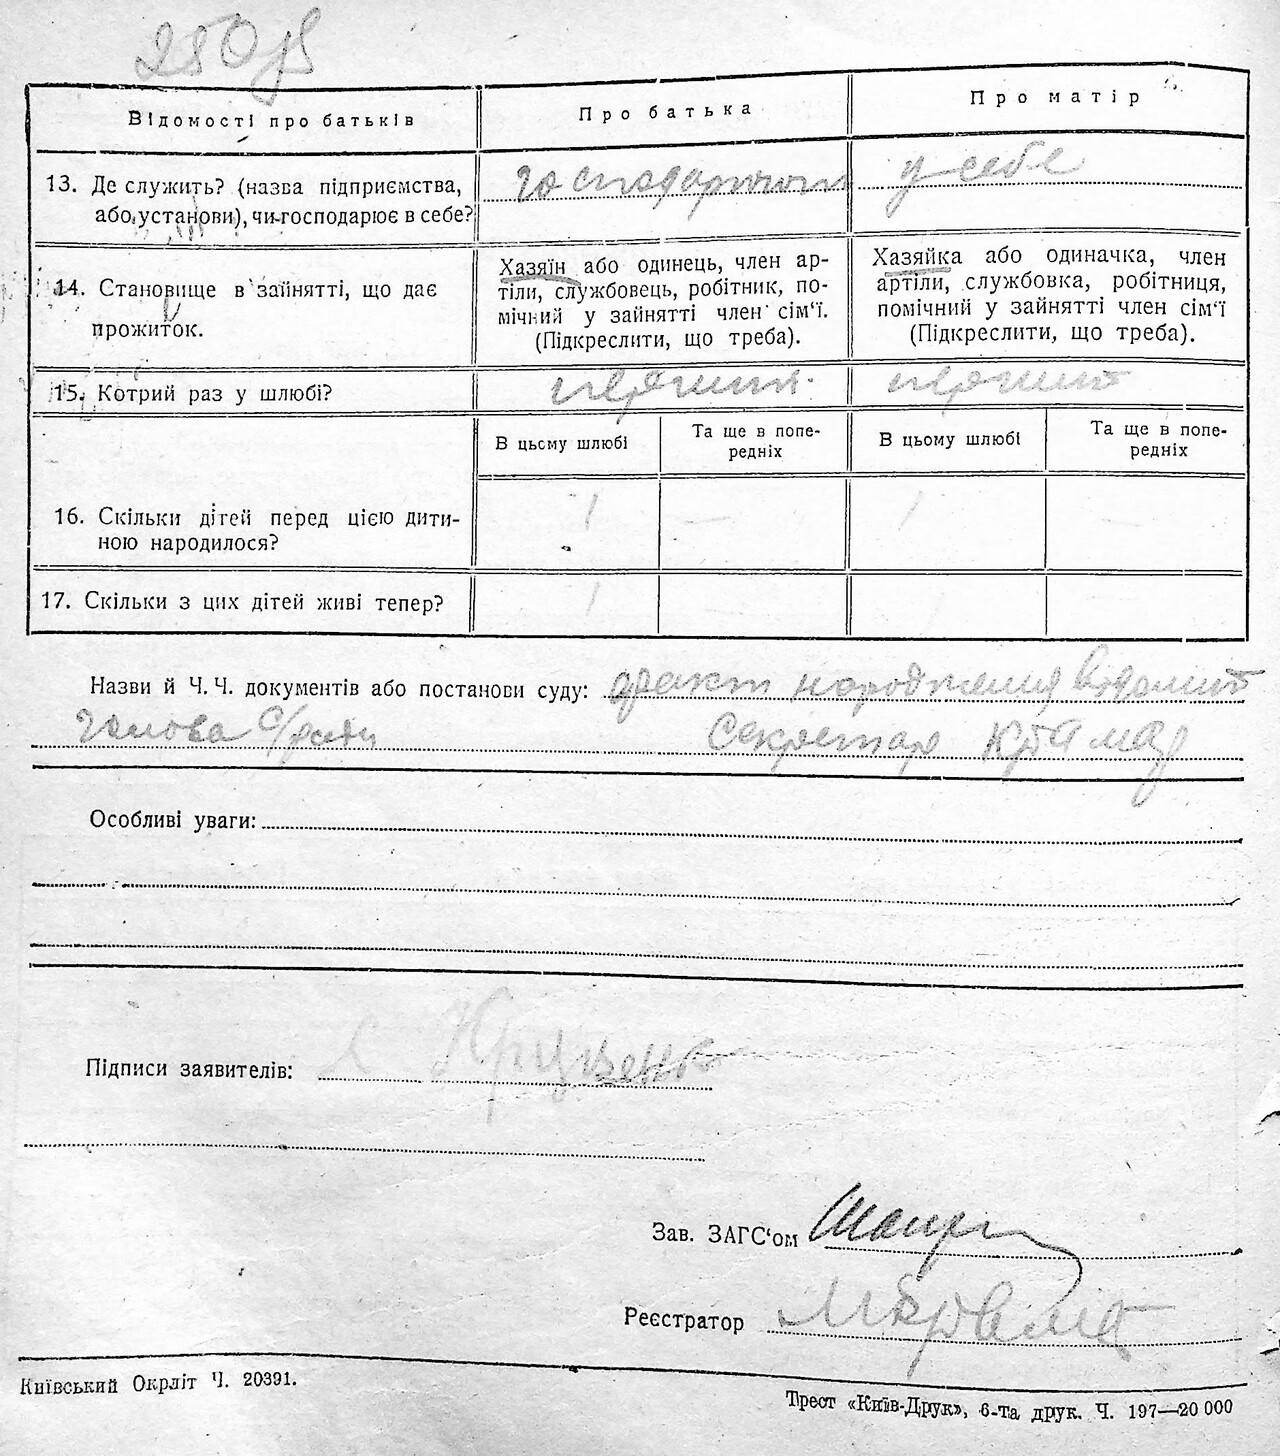 Відомості про батьків
Про батька
Про матір
13. Де служить? (назва підприємства,
або установи), чи господарює в себе?
у себе
14. Становище в зайнятті, що дає
прожиток.
Хазяїн або одинець, член ар-
тіли, службовець, робітник, по-
мічний у зайнятті член сім‘ї.
(Підкреслити, що треба).
Хазяйка або одиначка, член
артіли, службовка, робітниця,
помічний у зайнятті член сім‘ї
(Підкреслити, що треба).
15. Котрий раз у шлюбі?
В цьому шлюбі
Та ще в попе-
редніх
В цьому шлюбі
Та ще в попе-
редніх
16. Скільки дітей перед цією дити-
ною народилося?
1 — 1 —
17. Скільки з цих дітей живі тепер?
1 —
Назви й Ч. Ч. документів або постанови суду: факт народження
голова с/ради Секретар
Особливі уваги:
Підписи заявителів:
Зав. ЗАГС‘ом
Реєстратор
Київський Окрліт Ч. 20391.
Трест «Київ-Друк», 6-та друк. Ч. 197—20 000